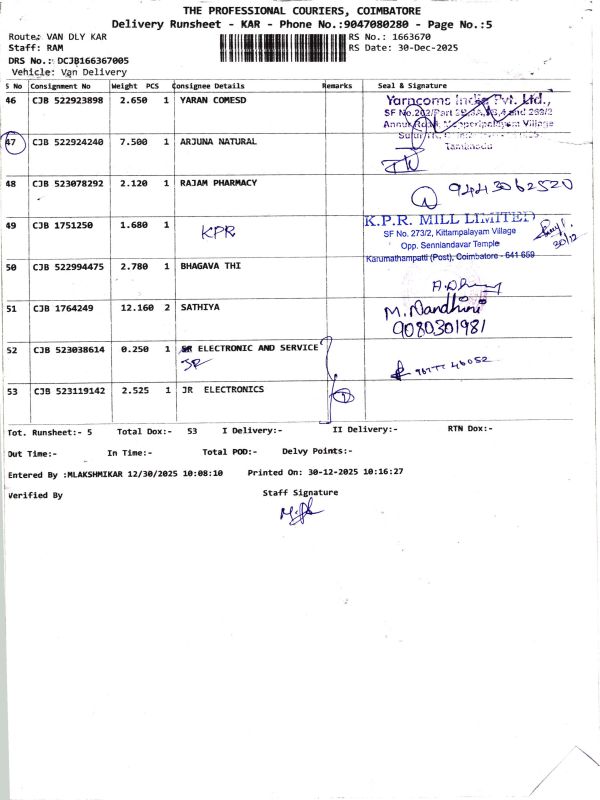 THE PROFESSIONAL COURIERS, COIMBATORE
Delivery Runsheet - KAR - Phone No.:9047080280 - Page No.:5
Route: VAN DLY KAR
RS No.: 1663670
Staff: RAM
RS Date: 30-Dec-2025
DRS No.: DCJB166367005
Vehicle: Van Delivery
S No Consignment No Weight PCS Consignee Details Remarks Seal & Signature
46 CJB 522923898 2.650 1 YARAN COMESD
Yarncoms India Pvt. Ltd.,
Tamilnadu
47 CJB 522924240 7.500 1 ARJUNA NATURAL
48 CJB 523078292 2.120 1 RAJAM PHARMACY
9443062520
49 CJB 1751250 1.680 1 KPR
K.P.R. MILL LIMITED
SF No. 273/2, Kittampalayam Village
Opp. Senniandavar Temple
Karumathampatti (Post), Coimbatore - 641 659
30/12
50 CJB 522994475 2.780 1 BHAGAVA THI
51 CJB 1764249 12.160 2 SATHIYA
M. Nandhini
9080301981
52 CJB 523038614 0.250 1 SR ELECTRONIC AND SERVICE
JR
53 CJB 523119142 2.525 1 JR ELECTRONICS
Tot. Runsheet:- 5 Total Dox:- 53 I Delivery:- II Delivery:- RTN Dox:-
Out Time:- In Time:- Total POD:- Delvy Points:-
Entered By :MLAKSHMIKAR 12/30/2025 10:08:10 Printed On: 30-12-2025 10:16:27
Verified By Staff Signature